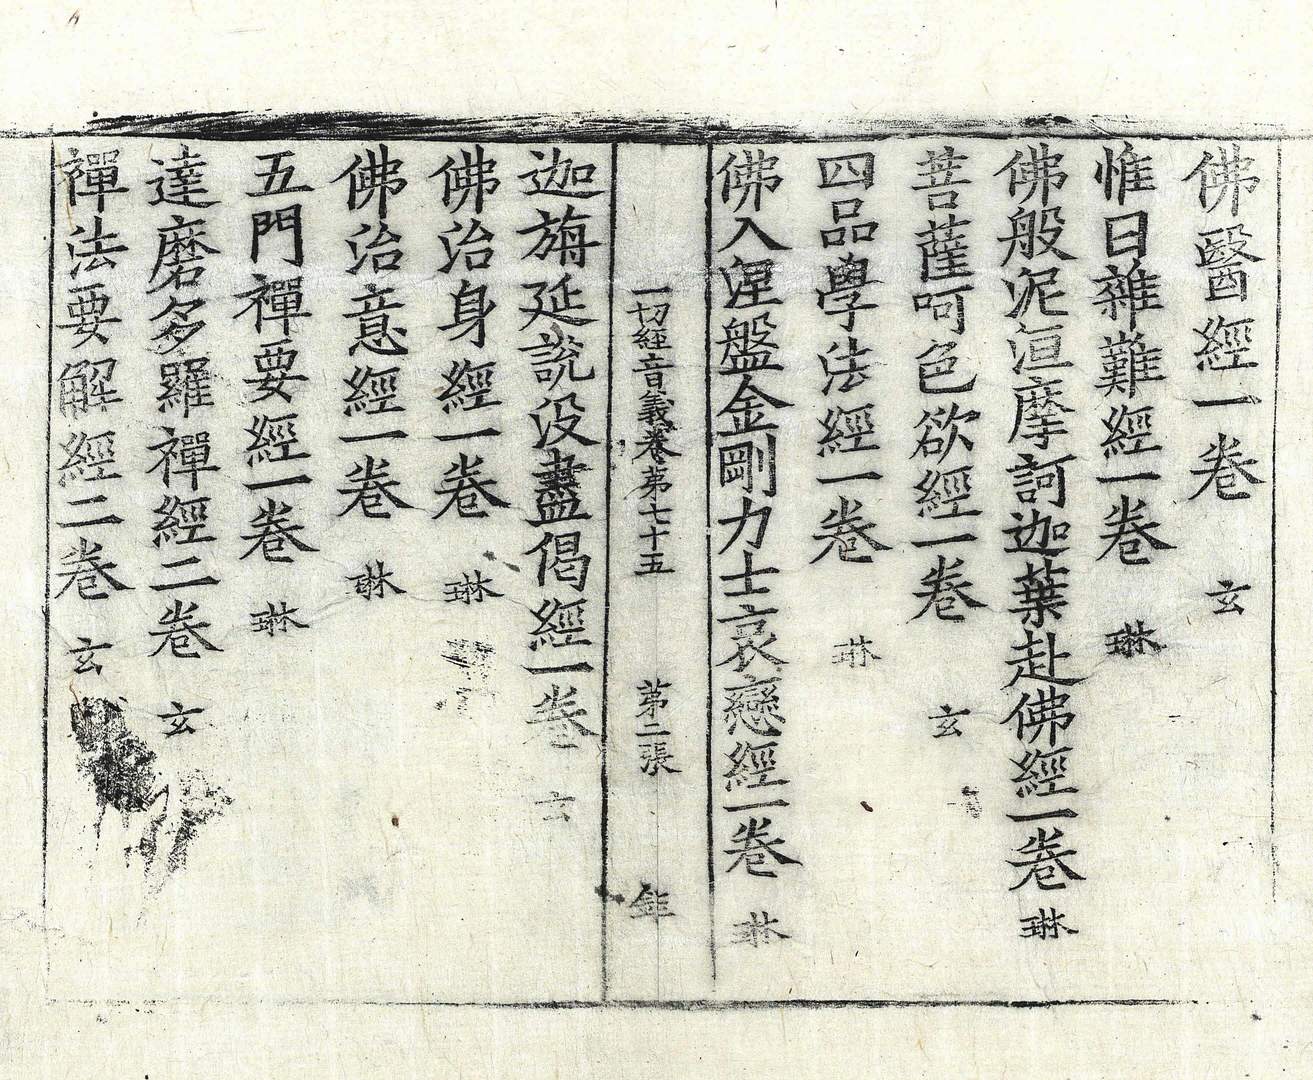 佛醫經一卷 玄
惟曰雜難經一卷 琳
佛般泥洹摩訶迦葉赴佛經一卷 琳
菩薩呵色欲經一卷 玄
四品學法經一卷 琳
佛入涅盤金剛力士哀戀經一卷 琳
一切經音義卷第七十五 第二張
迦旃延說没盡偈經一卷 玄
佛治身經一卷 琳
佛治意經一卷 琳
五門禪要經一卷 琳
達磨多羅禪經二卷 玄
禪法要解經二卷 玄